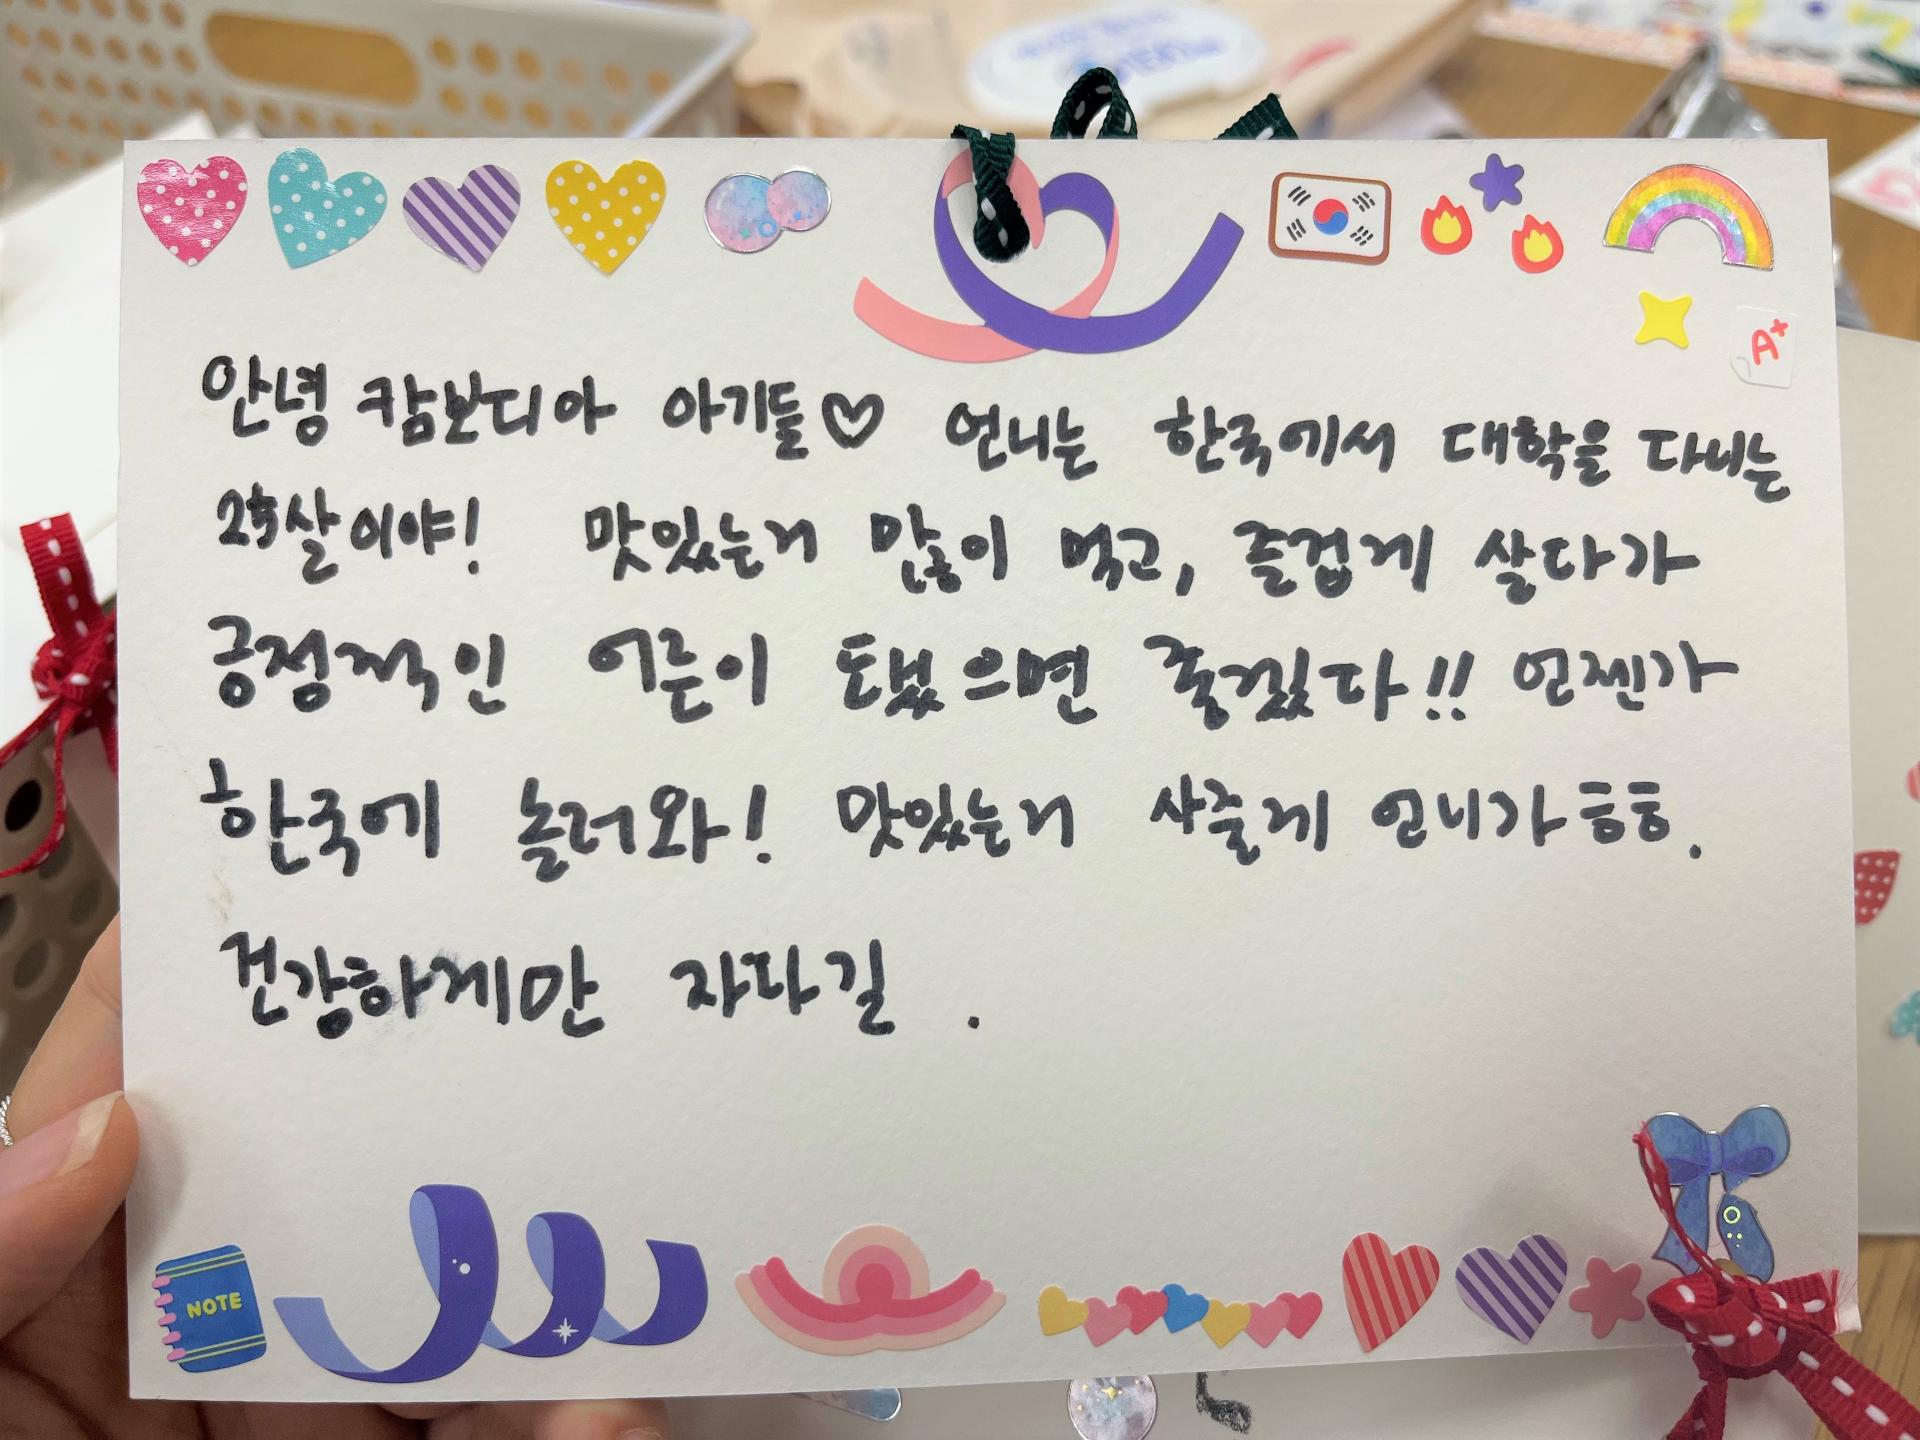 A+
안녕 캄보디아 아기들♡ 언니는 한국에서 대학을 다니는
25살이야! 맛있는거 많이 먹고, 즐겁게 살다가
긍정적인 어른이 됐으면 좋겠다!! 언젠가
한국에 놀러와! 맛있는거 사줄게 언니가ㅎㅎ.
건강하게만 자라길.
NOTE